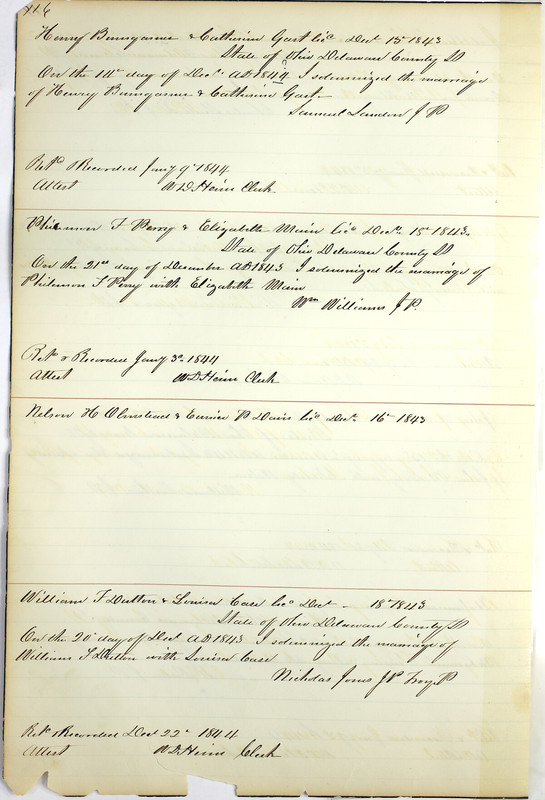 116
Henry Bumgarner & Catherine Gast Lic Dect 15th 1843
State of Ohio Delaware County SS
On the 14th day of Dec. AD 1844 I solemnized the marriage
of Henry Bumgarner & Catherine Gast
Samuel Landon J P
Retd & Recorded Jany 9th 1844
Attest W D Heim Clerk
Philemon F Perry & Elizabeth Main Lic Decr 15th 1843
State of Ohio Delaware County SS
On the 21st day of December AD 1843 I solemnized the marriage of
Philemon F Perry with Elizabeth Main
Wm Williams J P.
Retd & Recorded Jany 3d 1844
Attest W D Heim Clerk
Nelson H Olmstead & Eunice P Davis Lic Decr 16th 1843
William F Dutton & Louisa Case Lic Dect - 18th 1843
State of Ohio Delaware County SS
On the 20th day of Dect AD 1843 I solemnized the marriage of
William F Dutton with Louisa Case
Nicholas Jones J P Troy P
Retd & Recorded Dect 22d 1844
Attest W D Heim Clerk